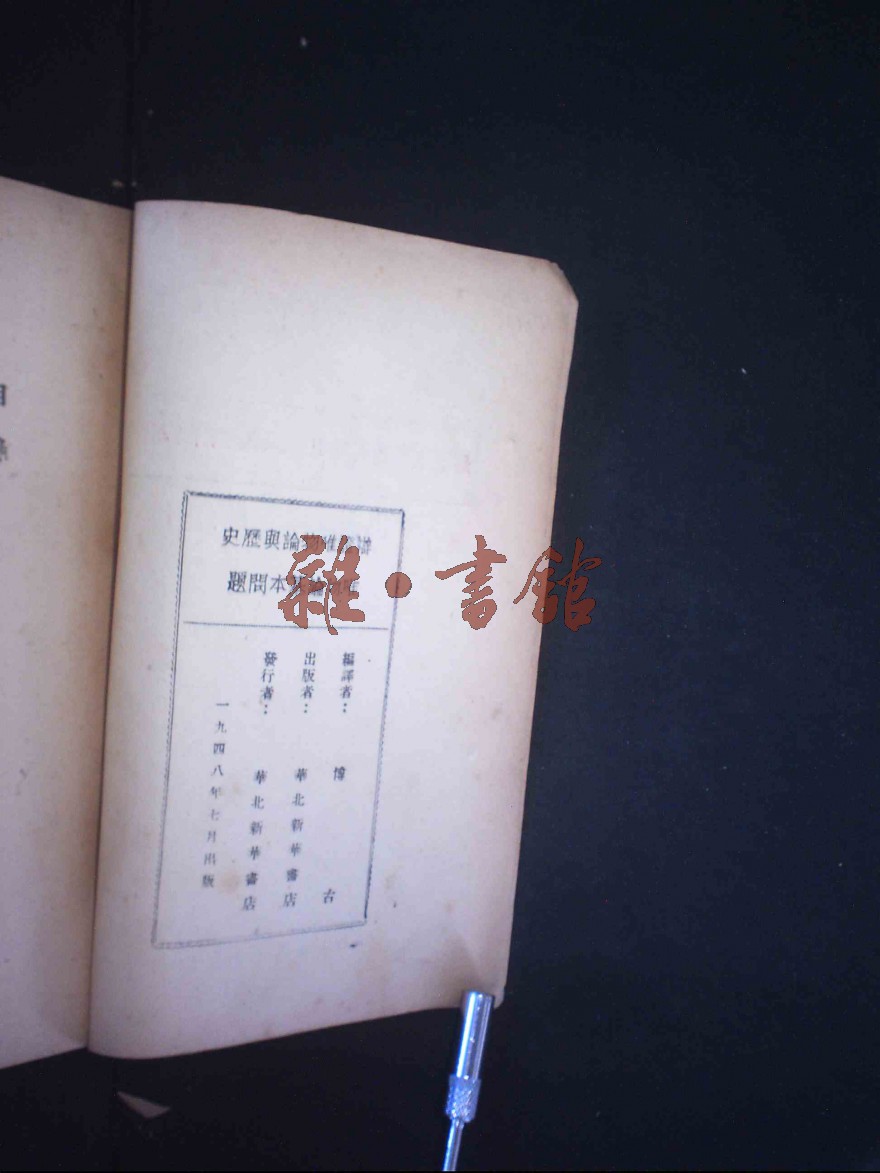 辯證唯物論與歷史
唯物論基本問題
編譯者：博古
出版者：華北新華書店
發行者：華北新華書店
一九四八年七月出版
雜·書館
目